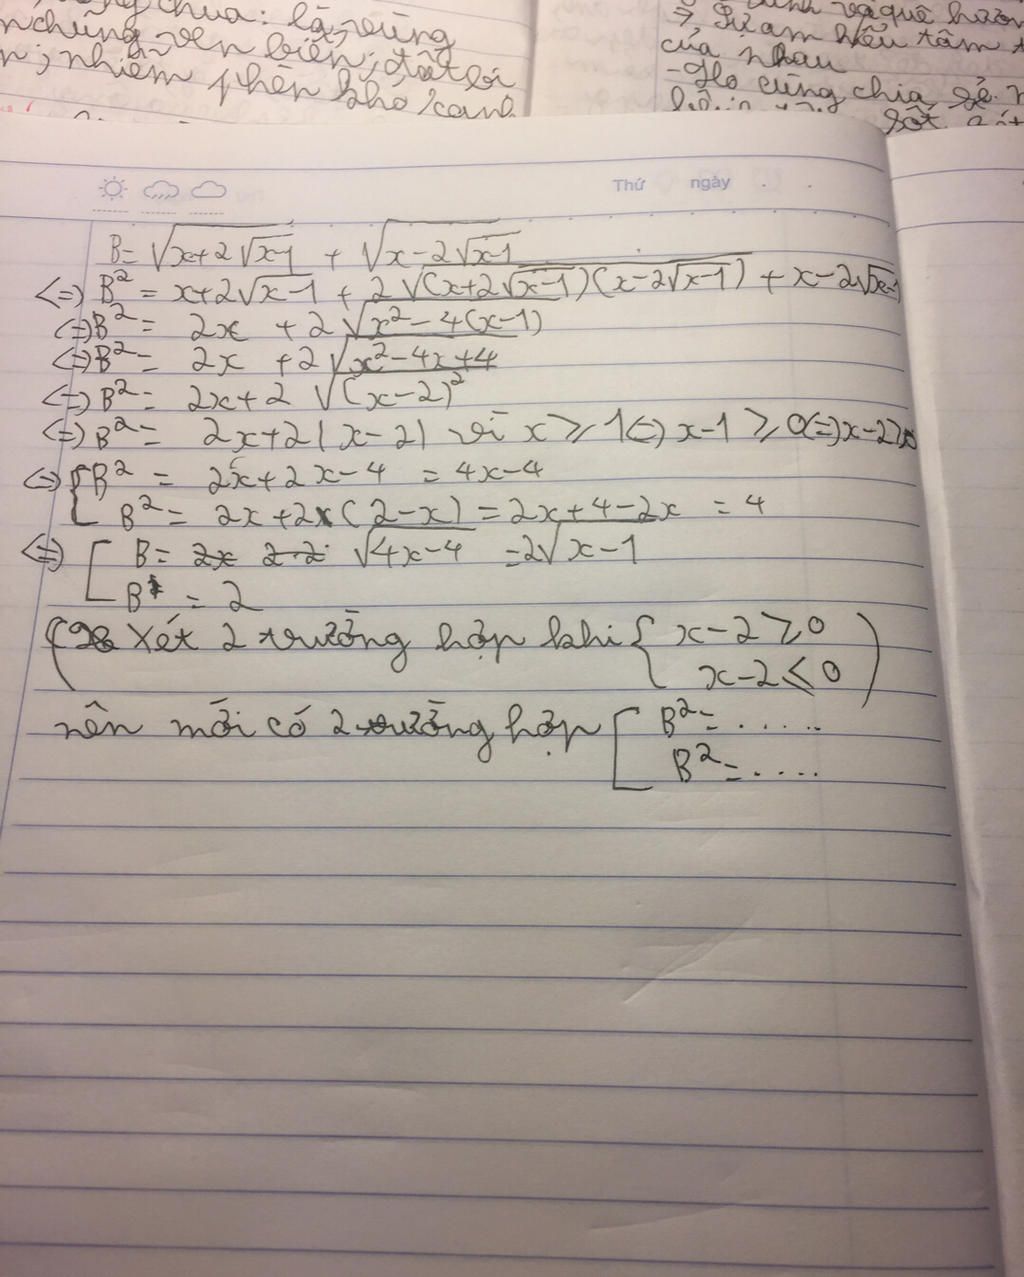 chua: là vùng
chũng ven biển, đất bị
nhiễm phèn khó canh
và quê hương
⇒ Sự am hiểu tâm
của nhau
- Họ cùng chia sẻ
Thứ ngày
B = √(x+2√(x-1)) + √(x-2√(x-1))
<=> B² = x+2√(x-1) + 2√((x+2√(x-1))(x-2√(x-1))) + x-2√(x-1)
<=> B² = 2x + 2√(x²-4(x-1))
<=> B² = 2x + 2√(x²-4x+4)
<=> B² = 2x+2 √((x-2)²)
<=> B² = 2x+2|x-2| vì x ≥ 1 <=> x-1 ≥ 0 <=> x-2 ≥
<=> [ B² = 2x+2x-4 = 4x-4
B² = 2x+2(2-x) = 2x+4-2x = 4
<=> [ B = √(4x-4) = 2√(x-1)
B = 2
( Xét 2 trường hợp khi { x-2 ≥ 0
x-2 ≤ 0 )
nên mới có 2 trường hợp [ B² = .....
B² = ....